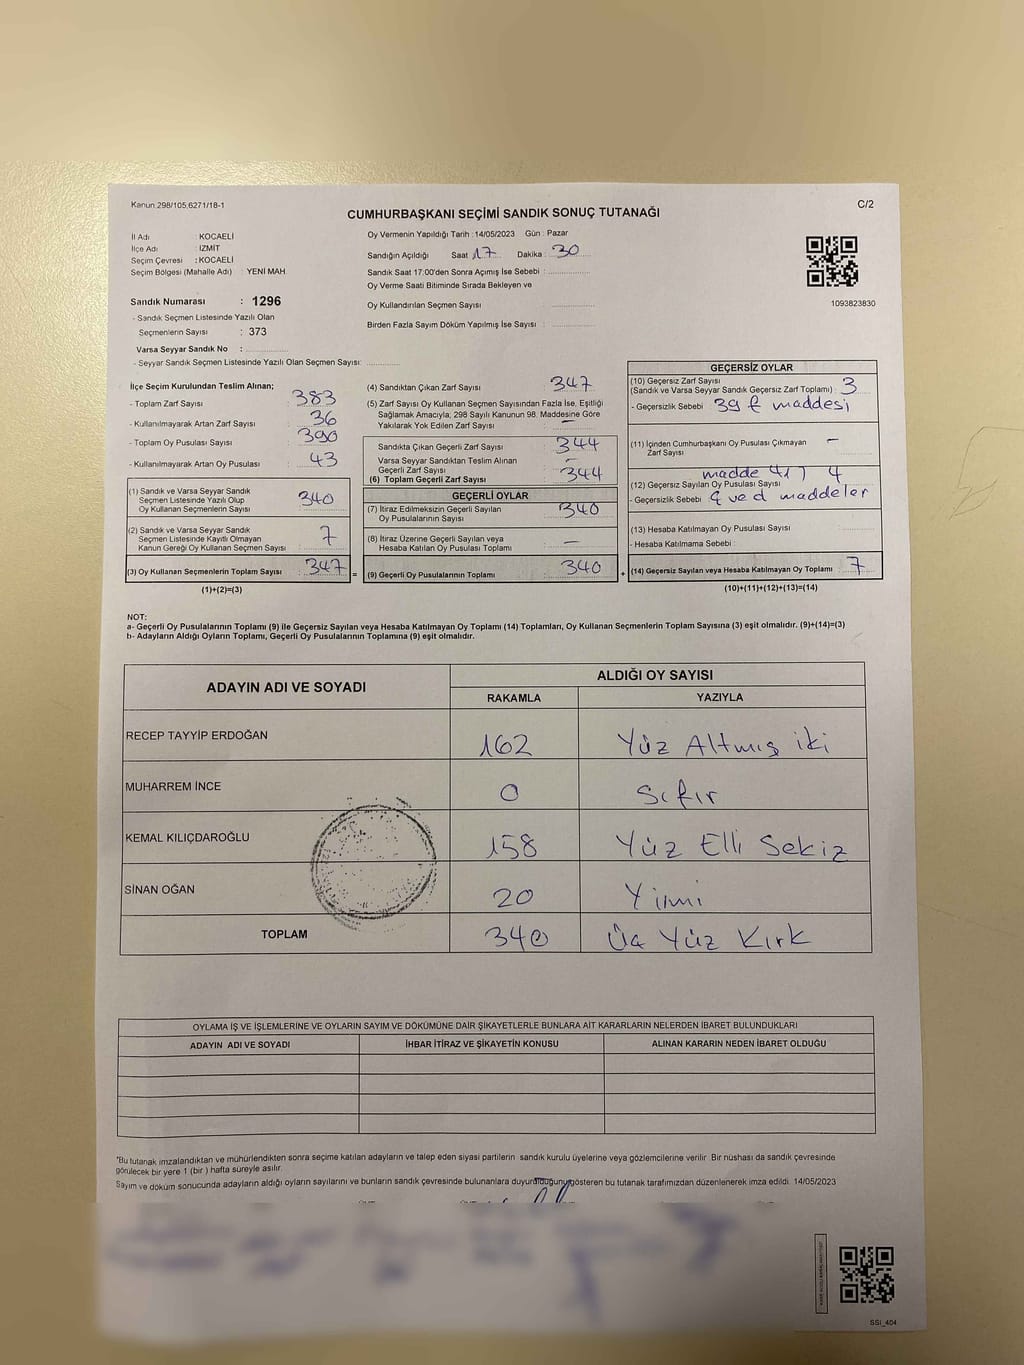 Kanun:298/105,6271/18-1
C/2
CUMHURBAŞKANI SEÇİMİ SANDIK SONUÇ TUTANAĞI
İl Adı : KOCAELİ
İlçe Adı : İZMİT
Seçim Çevresi : KOCAELİ
Seçim Bölgesi (Mahalle Adı) : YENİ MAH
Sandık Numarası : 1296
- Sandık Seçmen Listesinde Yazılı Olan
Seçmenlerin Sayısı : 373
Varsa Seyyar Sandık No :
- Seyyar Sandık Seçmen Listesinde Yazılı Olan Seçmen Sayısı:
Oy Vermenin Yapıldığı Tarih :14/05/2023 Gün : Pazar
Sandığın Açıldığı Saat 17 Dakika : 30
Sandık Saat 17.00'den Sonra Açımış İse Sebebi :
Oy Verme Saati Bitiminde Sırada Bekleyen ve
Oy Kullandırılan Seçmen Sayısı
Birden Fazla Sayım Döküm Yapılmış İse Sayısı :
1093823830
İlçe Seçim Kurulundan Teslim Alınan;
- Toplam Zarf Sayısı : 383
- Kullanılmayarak Artan Zarf Sayısı : 36
- Toplam Oy Pusulası Sayısı : 390
- Kullanılmayarak Artan Oy Pusulası : 43
(1) Sandık ve Varsa Seyyar Sandık
Seçmen Listesinde Yazılı Olup
Oy Kullanan Seçmenlerin Sayısı : 340
(2) Sandık ve Varsa Seyyar Sandık
Seçmen Listesinde Kayıtlı Olmayan
Kanun Gereği Oy Kullanan Seçmen Sayısı : 7
(3) Oy Kullanan Seçmenlerin Toplam Sayısı : 347 =
(1)+(2)=(3)
(4) Sandıktan Çıkan Zarf Sayısı : 347
(5) Zarf Sayısı Oy Kullanan Seçmen Sayısından Fazla İse, Eşitliği
Sağlamak Amacıyla; 298 Sayılı Kanunun 98. Maddesine Göre
Yakılarak Yok Edilen Zarf Sayısı : —
Sandıkta Çıkan Geçerli Zarf Sayısı : 344
Varsa Seyyar Sandıktan Teslim Alınan
Geçerli Zarf Sayısı : —
(6) Toplam Geçerli Zarf Sayısı : 344
GEÇERLİ OYLAR
(7) İtiraz Edilmeksizin Geçerli Sayılan
Oy Pusulalarının Sayısı : 340
(8) İtiraz Üzerine Geçerli Sayılan veya
Hesaba Katılan Oy Pusulası Toplamı : —
(9) Geçerli Oy Pusulalarının Toplamı : 340 +
GEÇERSİZ OYLAR
(10) Geçersiz Zarf Sayısı
(Sandık ve Varsa Seyyar Sandık Geçersiz Zarf Toplamı) : 3
- Geçersizlik Sebebi : 39 f maddesi
(11) İçinden Cumhurbaşkanı Oy Pusulası Çıkmayan
Zarf Sayısı : —
madde 41 )
(12) Geçersiz Sayılan Oy Pusulası Sayısı : 4
- Geçersizlik Sebebi : ç ve d maddeler
(13) Hesaba Katılmayan Oy Pusulası Sayısı :
- Hesaba Katılmama Sebebi :
(14) Geçersiz Sayılan veya Hesaba Katılmayan Oy Toplamı : 7
(10)+(11)+(12)+(13)=(14)
NOT:
a- Geçerli Oy Pusulalarının Toplamı (9) ile Geçersiz Sayılan veya Hesaba Katılmayan Oy Toplamı (14) Toplamları, Oy Kullanan Seçmenlerin Toplam Sayısına (3) eşit olmalıdır. (9)+(14)=(3)
b- Adayların Aldığı Oyların Toplamı, Geçerli Oy Pusulalarının Toplamına (9) eşit olmalıdır.
ADAYIN ADI VE SOYADI
ALDIĞI OY SAYISI
RAKAMLA YAZIYLA
RECEP TAYYİP ERDOĞAN 162 Yüz Altmış iki
MUHARREM İNCE 0 Sıfır
KEMAL KILIÇDAROĞLU 158 Yüz Elli Sekiz
SİNAN OĞAN 20 Yirmi
TOPLAM 340 Üç Yüz Kırk
OYLAMA İŞ VE İŞLEMLERİNE VE OYLARIN SAYIM VE DÖKÜMÜNE DAİR ŞİKAYETLERLE BUNLARA AİT KARARLARIN NELERDEN İBARET BULUNDUKLARI
ADAYIN ADI VE SOYADI İHBAR İTİRAZ VE ŞİKAYETİN KONUSU ALINAN KARARIN NEDEN İBARET OLDUĞU
*Bu tutanak imzalandıktan ve mühürlendikten sonra seçime katılan adayların ve talep eden siyasi partilerin sandık kurulu üyelerine veya gözlemcilerine verilir. Bir nüshası da sandık çevresinde
görülecek bir yere 1 (bir ) hafta süreyle asılır.
Sayım ve döküm sonucunda adayların aldığı oyların sayılarını ve bunların sandık çevresinde bulunanlara duyurulduğunu gösteren bu tutanak tarafımızdan düzenlenerek imza edildi. 14/05/2023
SSI_404